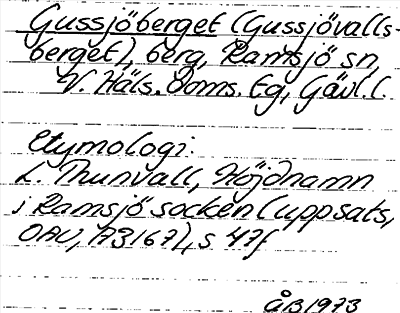 Gussjöberget (Gussjövalls-
berget), berg, Ramsjö sn,
V. Häls. Doms. Eg, Gävl. l.
Etymologi:
L. Thunvall, Höjdnamn
i Ramsjö socken (uppsats,
OAU, A3167), s 47f
ÅB 1973